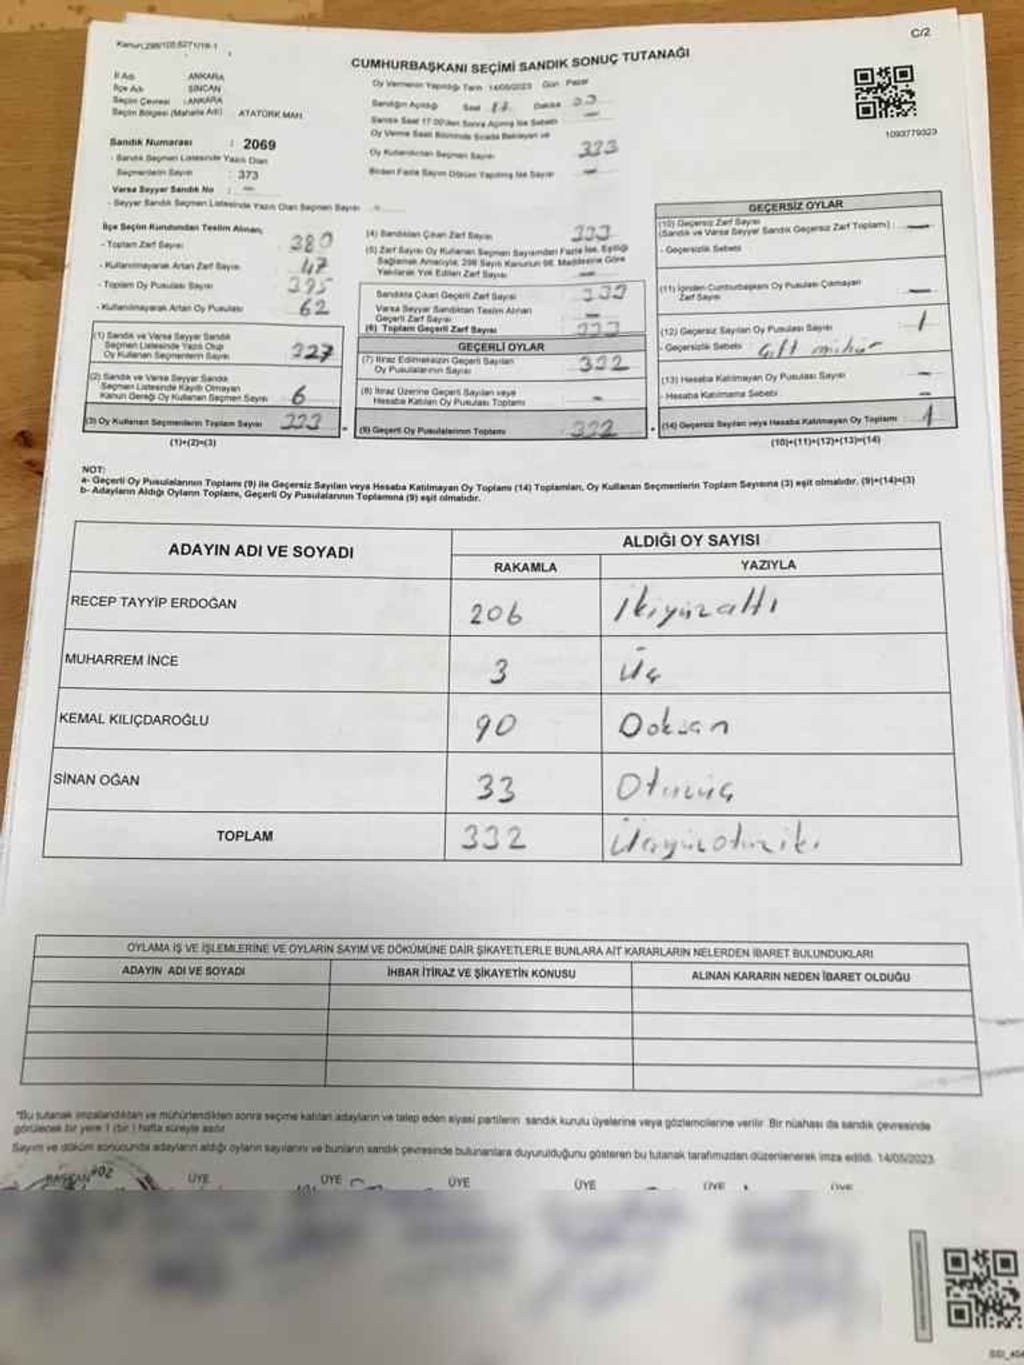 C/2
CUMHURBAŞKANI SEÇİMİ SANDIK SONUÇ TUTANAĞI
İl Adı ANKARA
İlçe Adı SİNCAN
Seçim Çevresi : ANKARA
Seçim Bölgesi (Mahalle Adı) ATATÜRK MAH.
Oy Vermenin Yapıldığı Tarih 14/05/2023 Gün Pazar
Sandığın Açıldığı Saat Dakika
Oy Kullandıran Seçmen Sayısı 333
1093779323
Sandık Numarası : 2069
- Sandık Seçmen Listesinde Yazılı Olan
Seçmenlerin Sayısı : 373
Varsa Seyyar Sandık No : -
- Seyyar Sandık Seçmen Listesinde Yazılı Olan Seçmen Sayısı
İlçe Seçim Kurulundan Teslim Alınan;
- Toplam Zarf Sayısı 380
- Kullanılmayarak Artan Zarf Sayısı 47
- Toplam Oy Pusulası Sayısı 395
- Kullanılmayarak Artan Oy Pusulası 62
(1) Sandık ve Varsa Seyyar Sandık
Seçmen Listesinde Yazılı Olup
Oy Kullanan Seçmenlerin Sayısı 327
(2) Sandık ve Varsa Seyyar Sandık
Seçmen Listesinde Kayıtlı Olmayan
Kanun Gereği Oy Kullanan Seçmen Sayısı 6
(3) Oy Kullanan Seçmenlerin Toplam Sayısı 333
(1)+(2)=(3)
(4) Sandıktan Çıkan Zarf Sayısı 333
(5) Zarf Sayısı Oy Kullanan Seçmen Sayısından Fazla İse, Eşitliği
Sağlamak Amacıyla, 298 Sayılı Kanunun 98. Maddesine Göre
Yakılarak Yok Edilen Zarf Sayısı -
Sandıkta Çıkan Geçerli Zarf Sayısı 333
Varsa Seyyar Sandıktan Teslim Alınan
Geçerli Zarf Sayısı -
(6) Toplam Geçerli Zarf Sayısı 333
GEÇERLİ OYLAR
(7) İtiraz Edilmeksizin Geçerli Sayılan
Oy Pusulalarının Sayısı 332
(8) İtiraz Üzerine Geçerli Sayılan veya
Hesaba Katılan Oy Pusulası Toplamı -
(9) Geçerli Oy Pusulalarının Toplamı 332
GEÇERSİZ OYLAR
(10) Geçersiz Zarf Sayısı
(Sandık ve Varsa Seyyar Sandık Geçersiz Zarf Toplamı) : -
- Geçersizlik Sebebi
(11) İçinden Cumhurbaşkanı Oy Pusulası Çıkmayan
Zarf Sayısı -
(12) Geçersiz Sayılan Oy Pusulası Sayısı 1
- Geçersizlik Sebebi Çift mühür
(13) Hesaba Katılmayan Oy Pusulası Sayısı -
- Hesaba Katılmama Sebebi -
(14) Geçersiz Sayılan veya Hesaba Katılmayan Oy Toplamı 1
(10)+(11)+(12)+(13)=(14)
NOT:
a- Geçerli Oy Pusulalarının Toplamı (9) ile Geçersiz Sayılan veya Hesaba Katılmayan Oy Toplamı (14) Toplamları, Oy Kullanan Seçmenlerin Toplam Sayısına (3) eşit olmalıdır. (9)+(14)=(3)
b- Adayların Aldığı Oyların Toplamı, Geçerli Oy Pusulalarının Toplamına (9) eşit olmalıdır.
ADAYIN ADI VE SOYADI ALDIĞI OY SAYISI
RAKAMLA YAZIYLA
RECEP TAYYİP ERDOĞAN 206 İkiyüzaltı
MUHARREM İNCE 3 Üç
KEMAL KILIÇDAROĞLU 90 Doksan
SİNAN OĞAN 33 Otuzüç
TOPLAM 332 Üçyüzotuziki
OYLAMA İŞ VE İŞLEMLERİNE VE OYLARIN SAYIM VE DÖKÜMÜNE DAİR ŞİKAYETLERLE BUNLARA AİT KARARLARIN NELERDEN İBARET BULUNDUKLARI
ADAYIN ADI VE SOYADI İHBAR İTİRAZ VE ŞİKAYETİN KONUSU ALINAN KARARIN NEDEN İBARET OLDUĞU
*Bu tutanak imzalandıktan ve mühürlendikten sonra seçime katılan adayların ve talep eden siyasi partilerin sandık kurulu üyelerine veya gözlemcilerine verilir. Bir nüshası da sandık çevresinde
görülecek bir yere 1 (bir) hafta süreyle asılır.
Sayım ve döküm sonucunda adayların aldığı oyların sayılarını ve bunların sandık çevresinde bulunanlara duyurulduğunu gösteren bu tutanak tarafımızdan düzenlenerek imza edildi. 14/05/2023
BAŞKAN ÜYE ÜYE ÜYE ÜYE ÜYE ÜYE